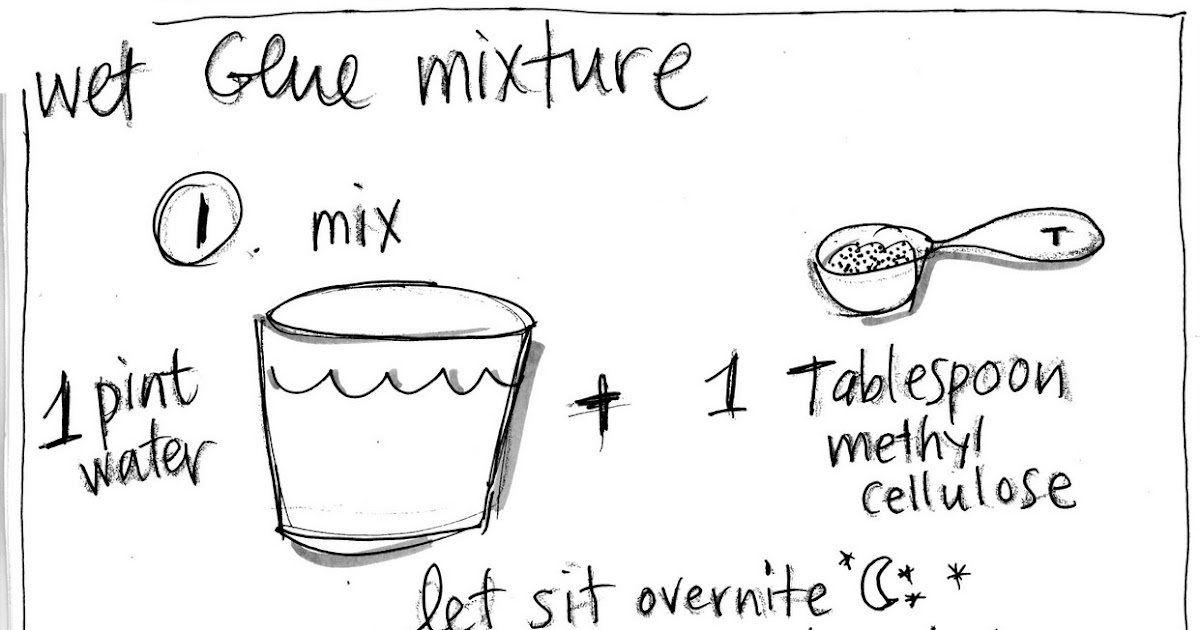 wet Glue mixture
1. mix
T
1 pint
water
+
1 Tablespoon
methyl
cellulose
let sit overnite